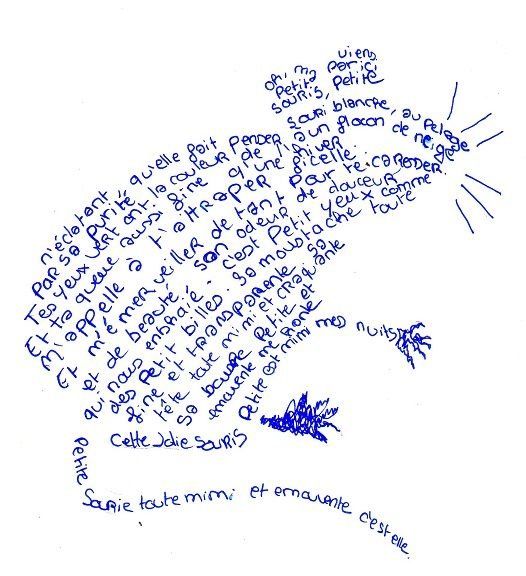 oh, ma
petite
souris,
viens
par ici
petite
souri blanche, au pelage
n'éclatant, qu'elle fait penser à un flocon de neige
par sa pureté,
Tes yeux vert ont la couleur de l'hiver
Et ta queue aussi fine q'une ficelle.
m'appelle à t'attraper pour te caresser
Et m'émerveiller de tant de douceur
et de beauté, son odeur
qui nous embraié. c'est Petit yeux comme
des petit billes. sa moustache toute
fine et transparente, sa
tête toute mimi et craquante
sa bouche petite et
emouvente me ronge
petite est mimi mes nuits
cette Jolie souris
Petite
Sourie toute mimi et emouvente c'est elle.